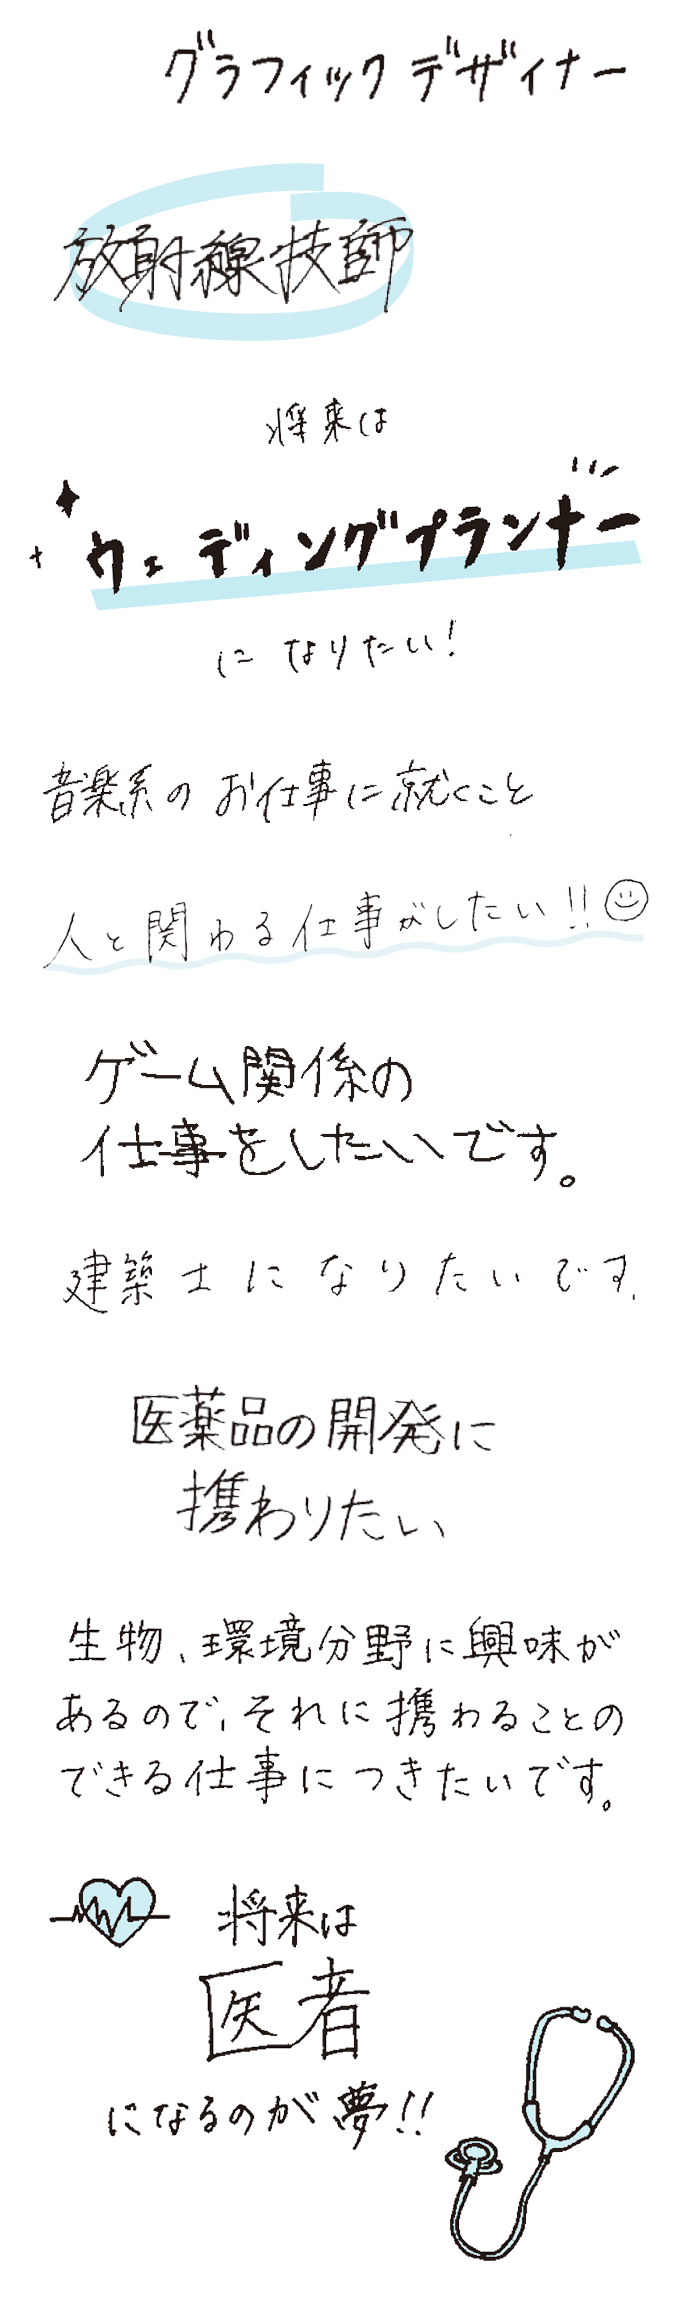 グラフィックデザイナー
放射線技師
将来は
ウェディングプランナー
になりたい!
音楽系のお仕事に就くこと
人と関わる仕事がしたい!!
ゲーム関係の
仕事をしたいです。
建築士になりたいです.
医薬品の開発に
携わりたい
生物、環境分野に興味が
あるので、それに携わることの
できる仕事につきたいです。
将来は
医者
になるのが夢!!